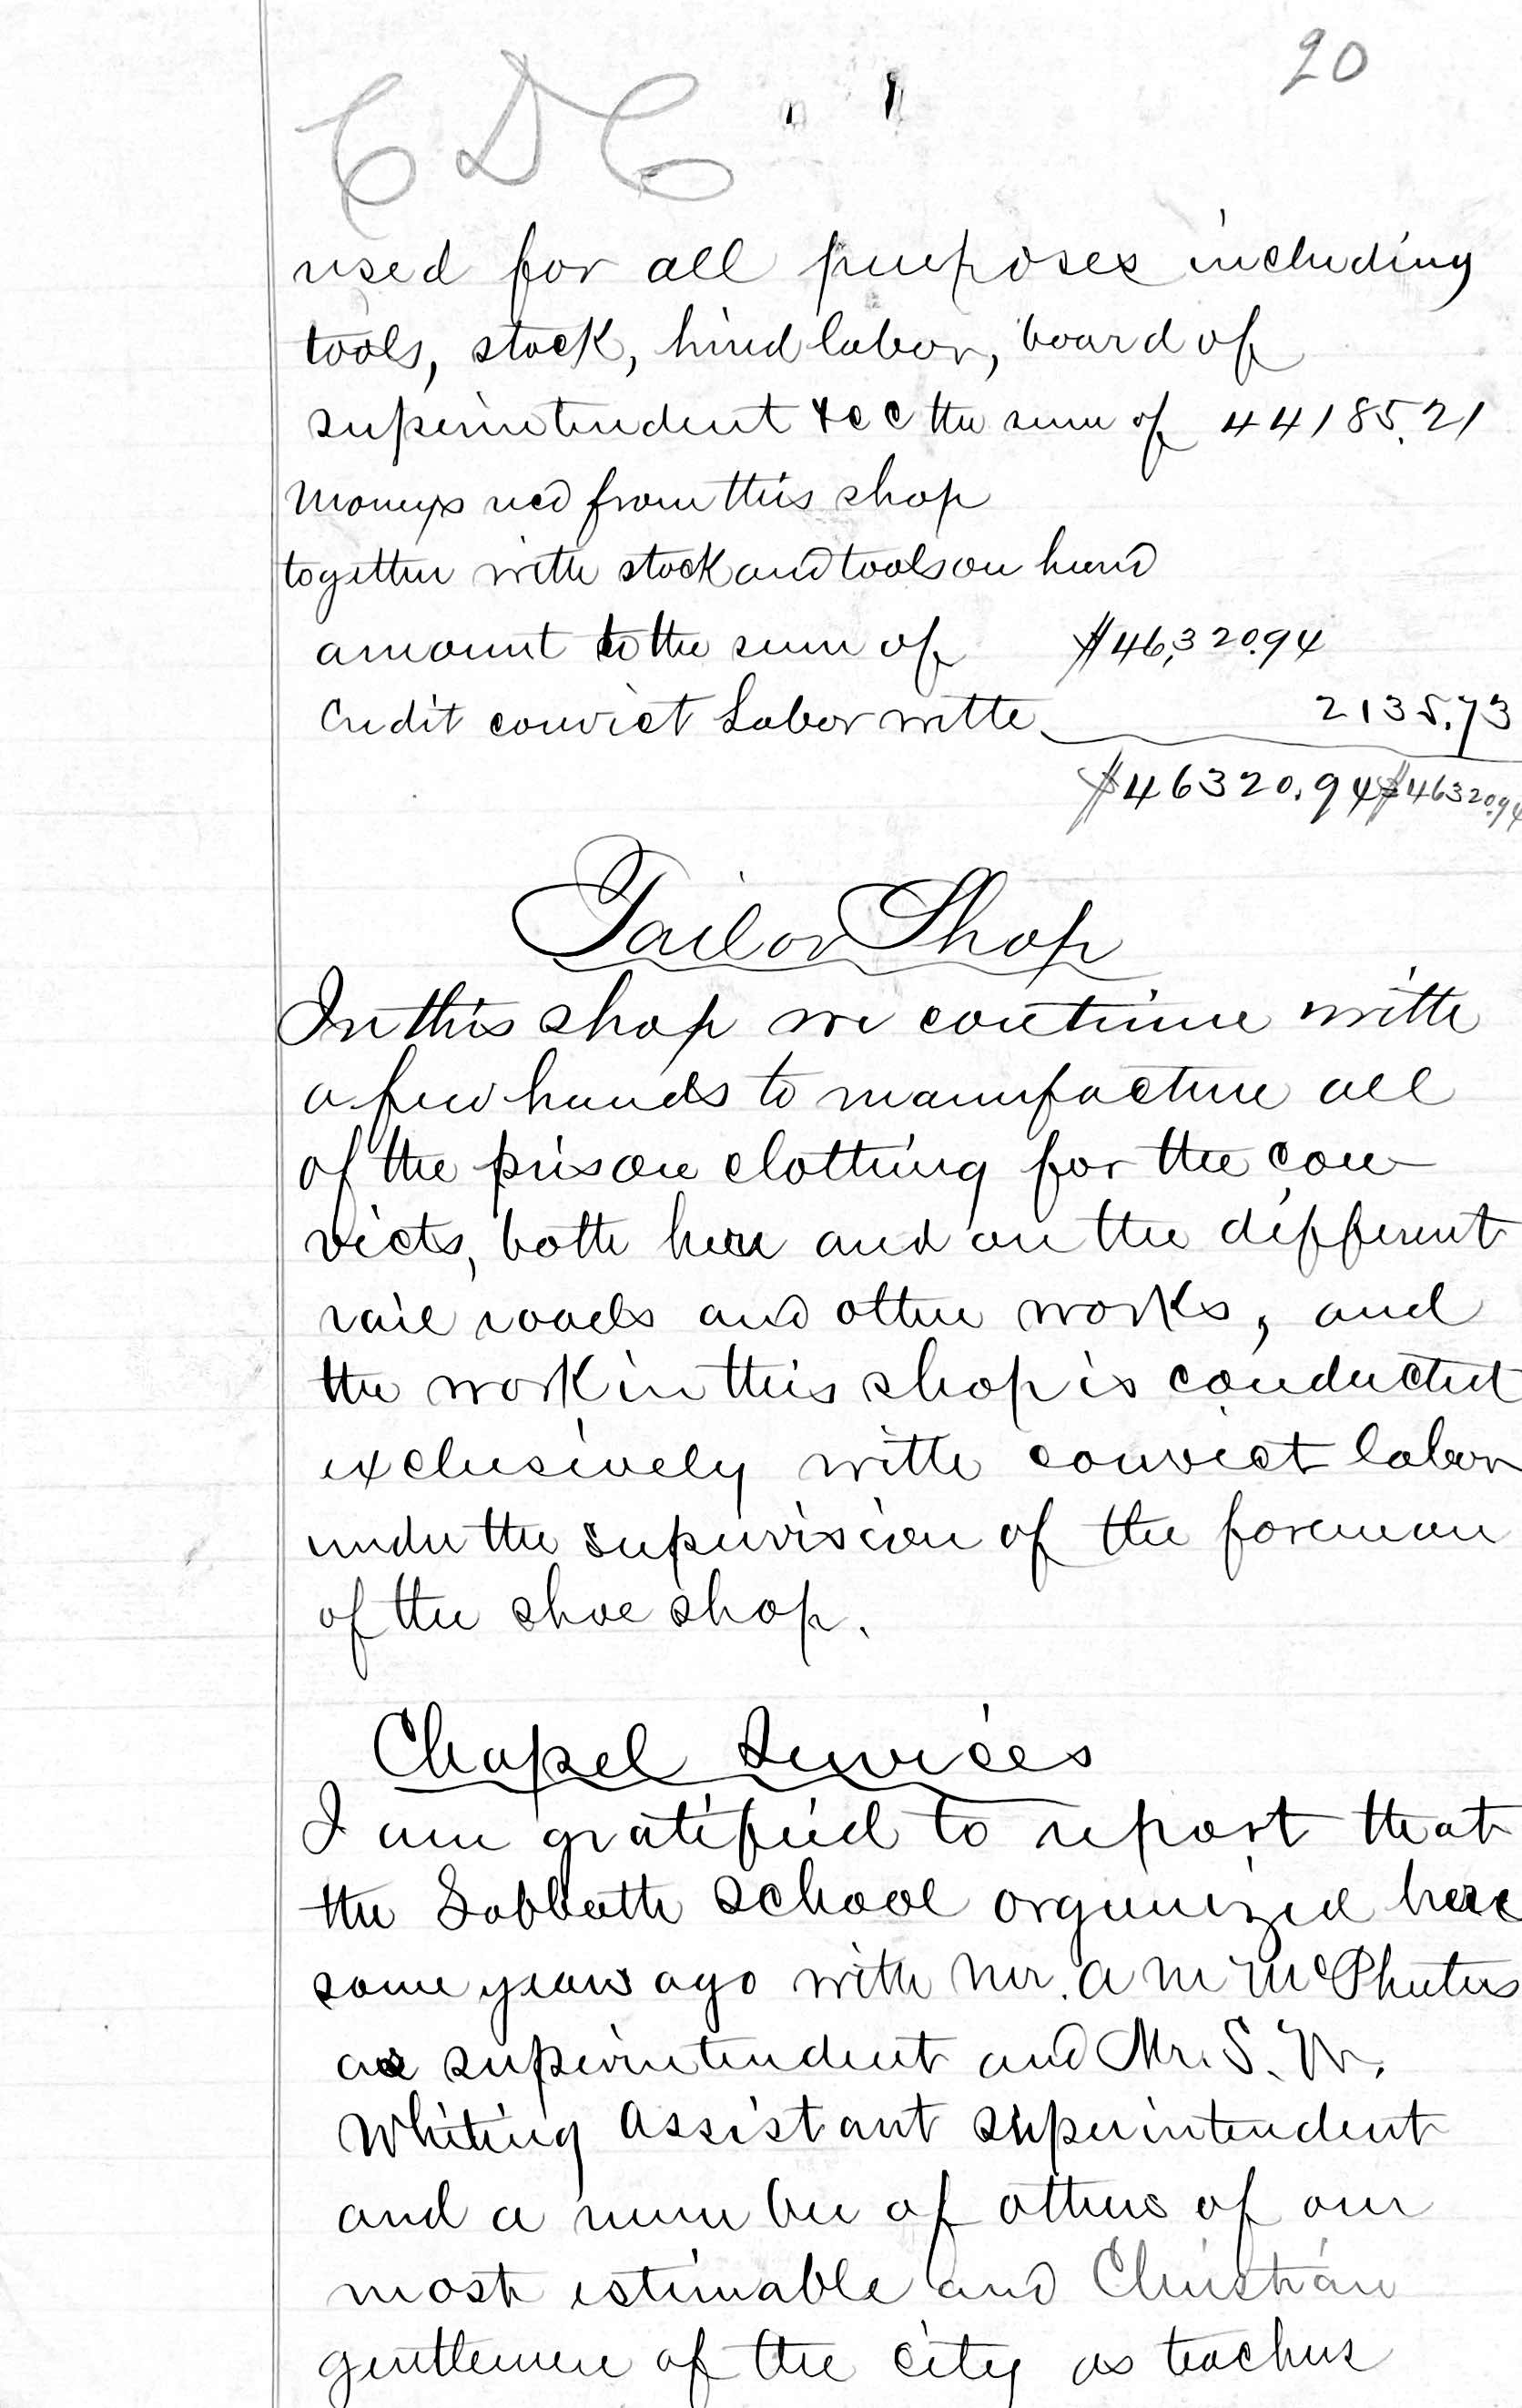 20
C D C " "
used for all purposes including
tools, stock, hired labor, board of
superintendent &cc the sum of 44185.21
Moneys recd from this shop
together with stock and tools on hand
amount to the sum of $46,320.94
Credit convict Labor with 2135.73
$46320.94 $46320.94
Tailor Shop
In this shop we continue with
a few hands to manufacture all
of the prison clothing for the con-
victs, both here and on the different
rail roads and other works, and
the work in this shop is conducted
exclusively with convict labor
under the supervision of the foreman
of the shoe shop.
Chapel Services
I am gratified to report that
the Sabbath School organized here
some years ago with Mr. A M McPheeters
as superintendent and Mr. S. W.
Whiting Assistant superintendent
and a number of others of our
most estimable and Christian
gentlemen of the city as teachers